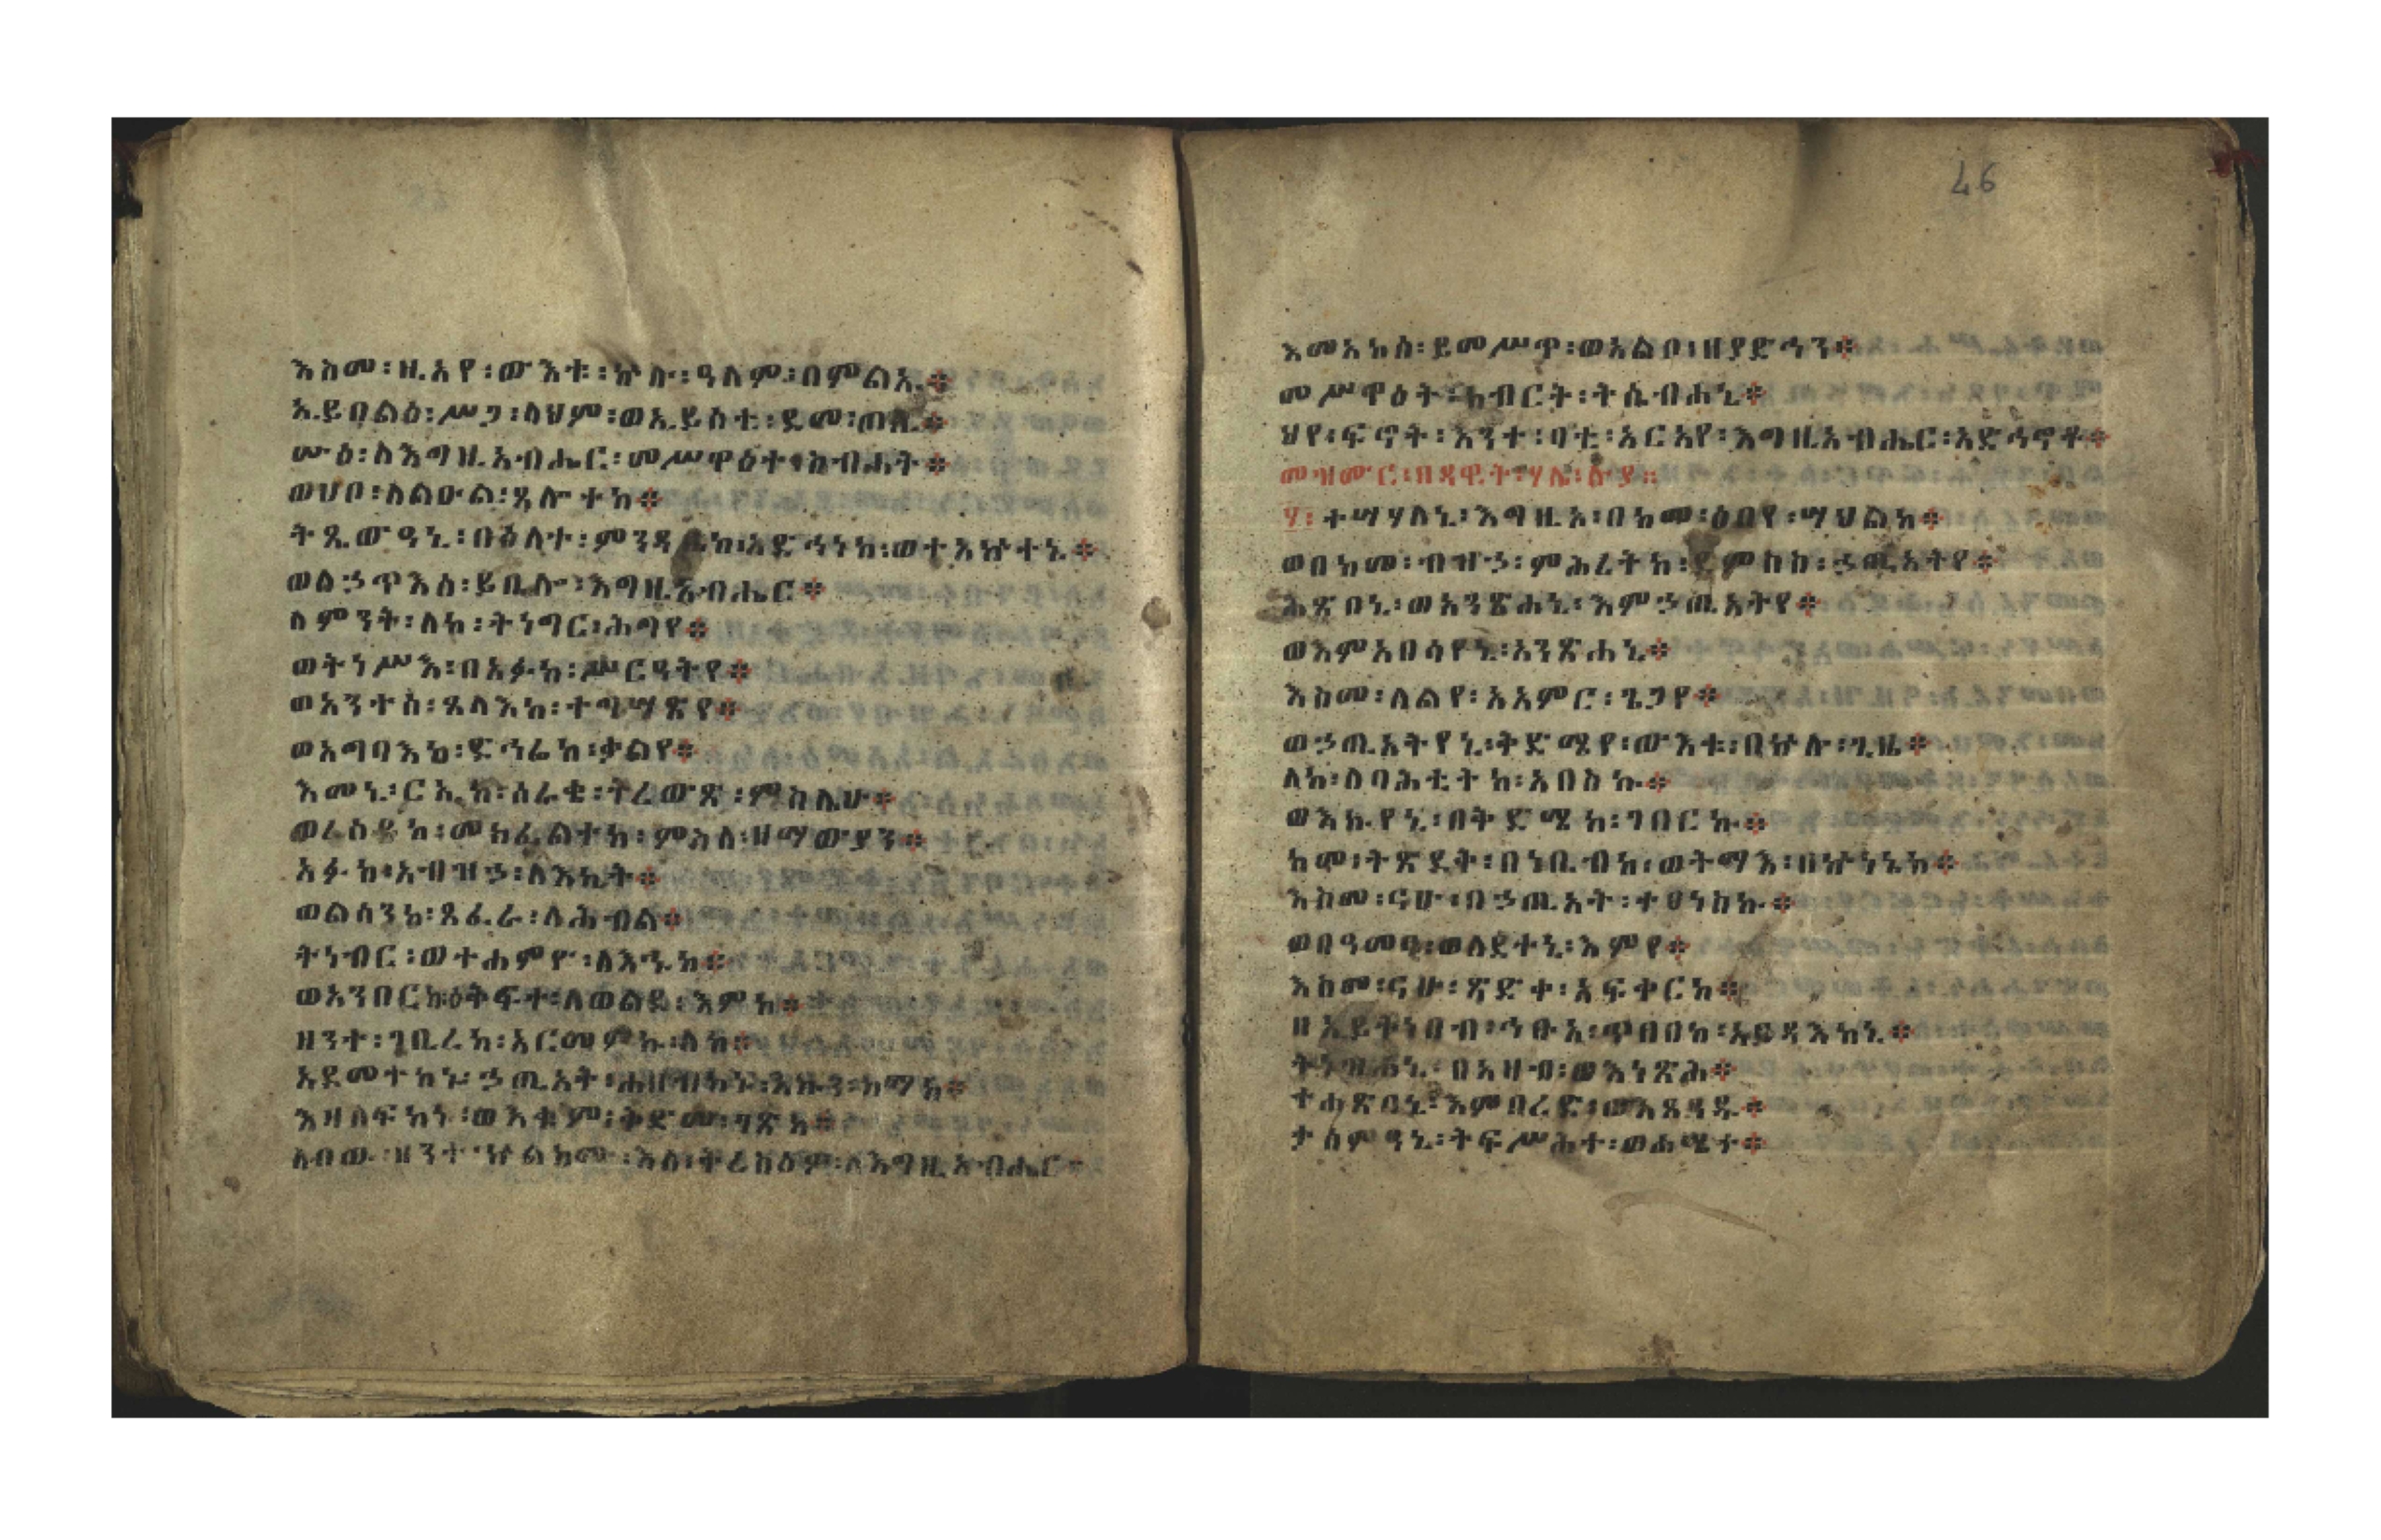 እስመ፡ዚአየ፡ውእቱ፡ኵሉ፡ዓለም፡በምልኡ፨
ኢይበልዕ፡ሥጋ፡ላህም፡ወኢይሰቲ፡ደመ፡ጠሊ፨
ሡዕ፡ለእግዚአብሔር፡መሥዋዕተ፡ስብሐት፨
ወሀቦ፡ለልዑል፡ጸሎተከ፨
ትጼውዓኒ፡በዕለተ፡ምንዳቤከ፡አድኅነከ፡ወተአኵተኒ፨
ወለኃጥእሰ፡ይቤሎ፡እግዚአብሔር፨
ለምንት፡ለከ፡ትነግር፡ሕግየ፨
ወትነሥእ፡በአፉከ፡ሥርዓትየ፨
ወአንተሰ፡ጸላእከ፡ተግሣጽየ፨
ወአግባእከ፡ድኅሬከ፡ቃልየ፨
እመኒ፡ርኢከ፡ሰራቄ፡ትረውጽ፡ምስሌሁ፨
ወረሰይከ፡መክፈልተከ፡ምስለ፡ዘማውያን፨
አፉከ፡አብዝኃ፡ለእኪት፨
ወልሳንከ፡ጸፈራ፡ለሕብል፨
ትነብር፡ወተሐምዮ፡ለእኁከ፨
ወአንበርከ፡ዕቅፍተ፡ለወልደ፡እምከ፨
ዘንተ፡ገቢረከ፡አርመምኩ፡ለከ፨
አደመተከኑ፡ኃጢአት፡ሐዘብከኑ፡እኩን፡ከማከ፨
እዛለፍከኑ፡ወእቁም፡ቅድመ፡ገጽከ፨
ለበዉ፡ዘንተ፡ኵልክሙ፡እለ፡ትረስዕዎ፡ለእግዚአብሔር፨
እመአከሰ፡ይመሥጥ፡ወአልቦ፡ዘያድኅን፨
መሥዋዕት፡ክብርት፡ትሴብሐኒ፨
ህየ፡ፍኖት፡እንተ፡ባቲ፡አርአየ፡እግዚአብሔር፡አድኅኖቶ፨
መዝሙር፡በዳዊት፡ሃሌ፡ሉያ።
፶፡ተሣሃለኒ፡እግዚአ፡በከመ፡ዕበየ፡ሣህልከ፨
ወበከመ፡ብዝኃ፡ምሕረትከ፡ደምስስ፡ኃጢአትየ፨
ሕጽበኒ፡ወአንጽሐኒ፡እምኃጢአትየ፨
ወእምአበሳየኒ፡አንጽሐኒ፨
እስመ፡ለልየ፡አአምር፡ጌጋየ፨
ወኃጢአትየኒ፡ቅድሜየ፡ውእቱ፡በኵሉ፡ጊዜ፨
ለከ፡ለባሕቲትከ፡አበስኩ፨
ወእኩየኒ፡በቅድሜከ፡ገበርኩ፨
ከመ፡ትጽደቅ፡በነቢብከ፡ወትማእ፡በኵነኔከ፨
እስመ፡ናሁ፡በኃጢአት፡ተፀነስኩ፨
ወበዓመፃ፡ወለደተኒ፡እምየ፨
እስመ፡ናሁ፡ጽድቀ፡አፍቀርከ፨
ዘኢይትነበብ፡ኅቡአ፡ጥበበከ፡አይዳእከኒ፨
ትነዝሐኒ፡በአዛብ፡ወእነጽሕ፨
ተሐፅበኒ፡እምበረድ፡ወእጸዓዱ፨
ታሰምዓኒ፡ትፍሥሕተ፡ወሐሤተ፨